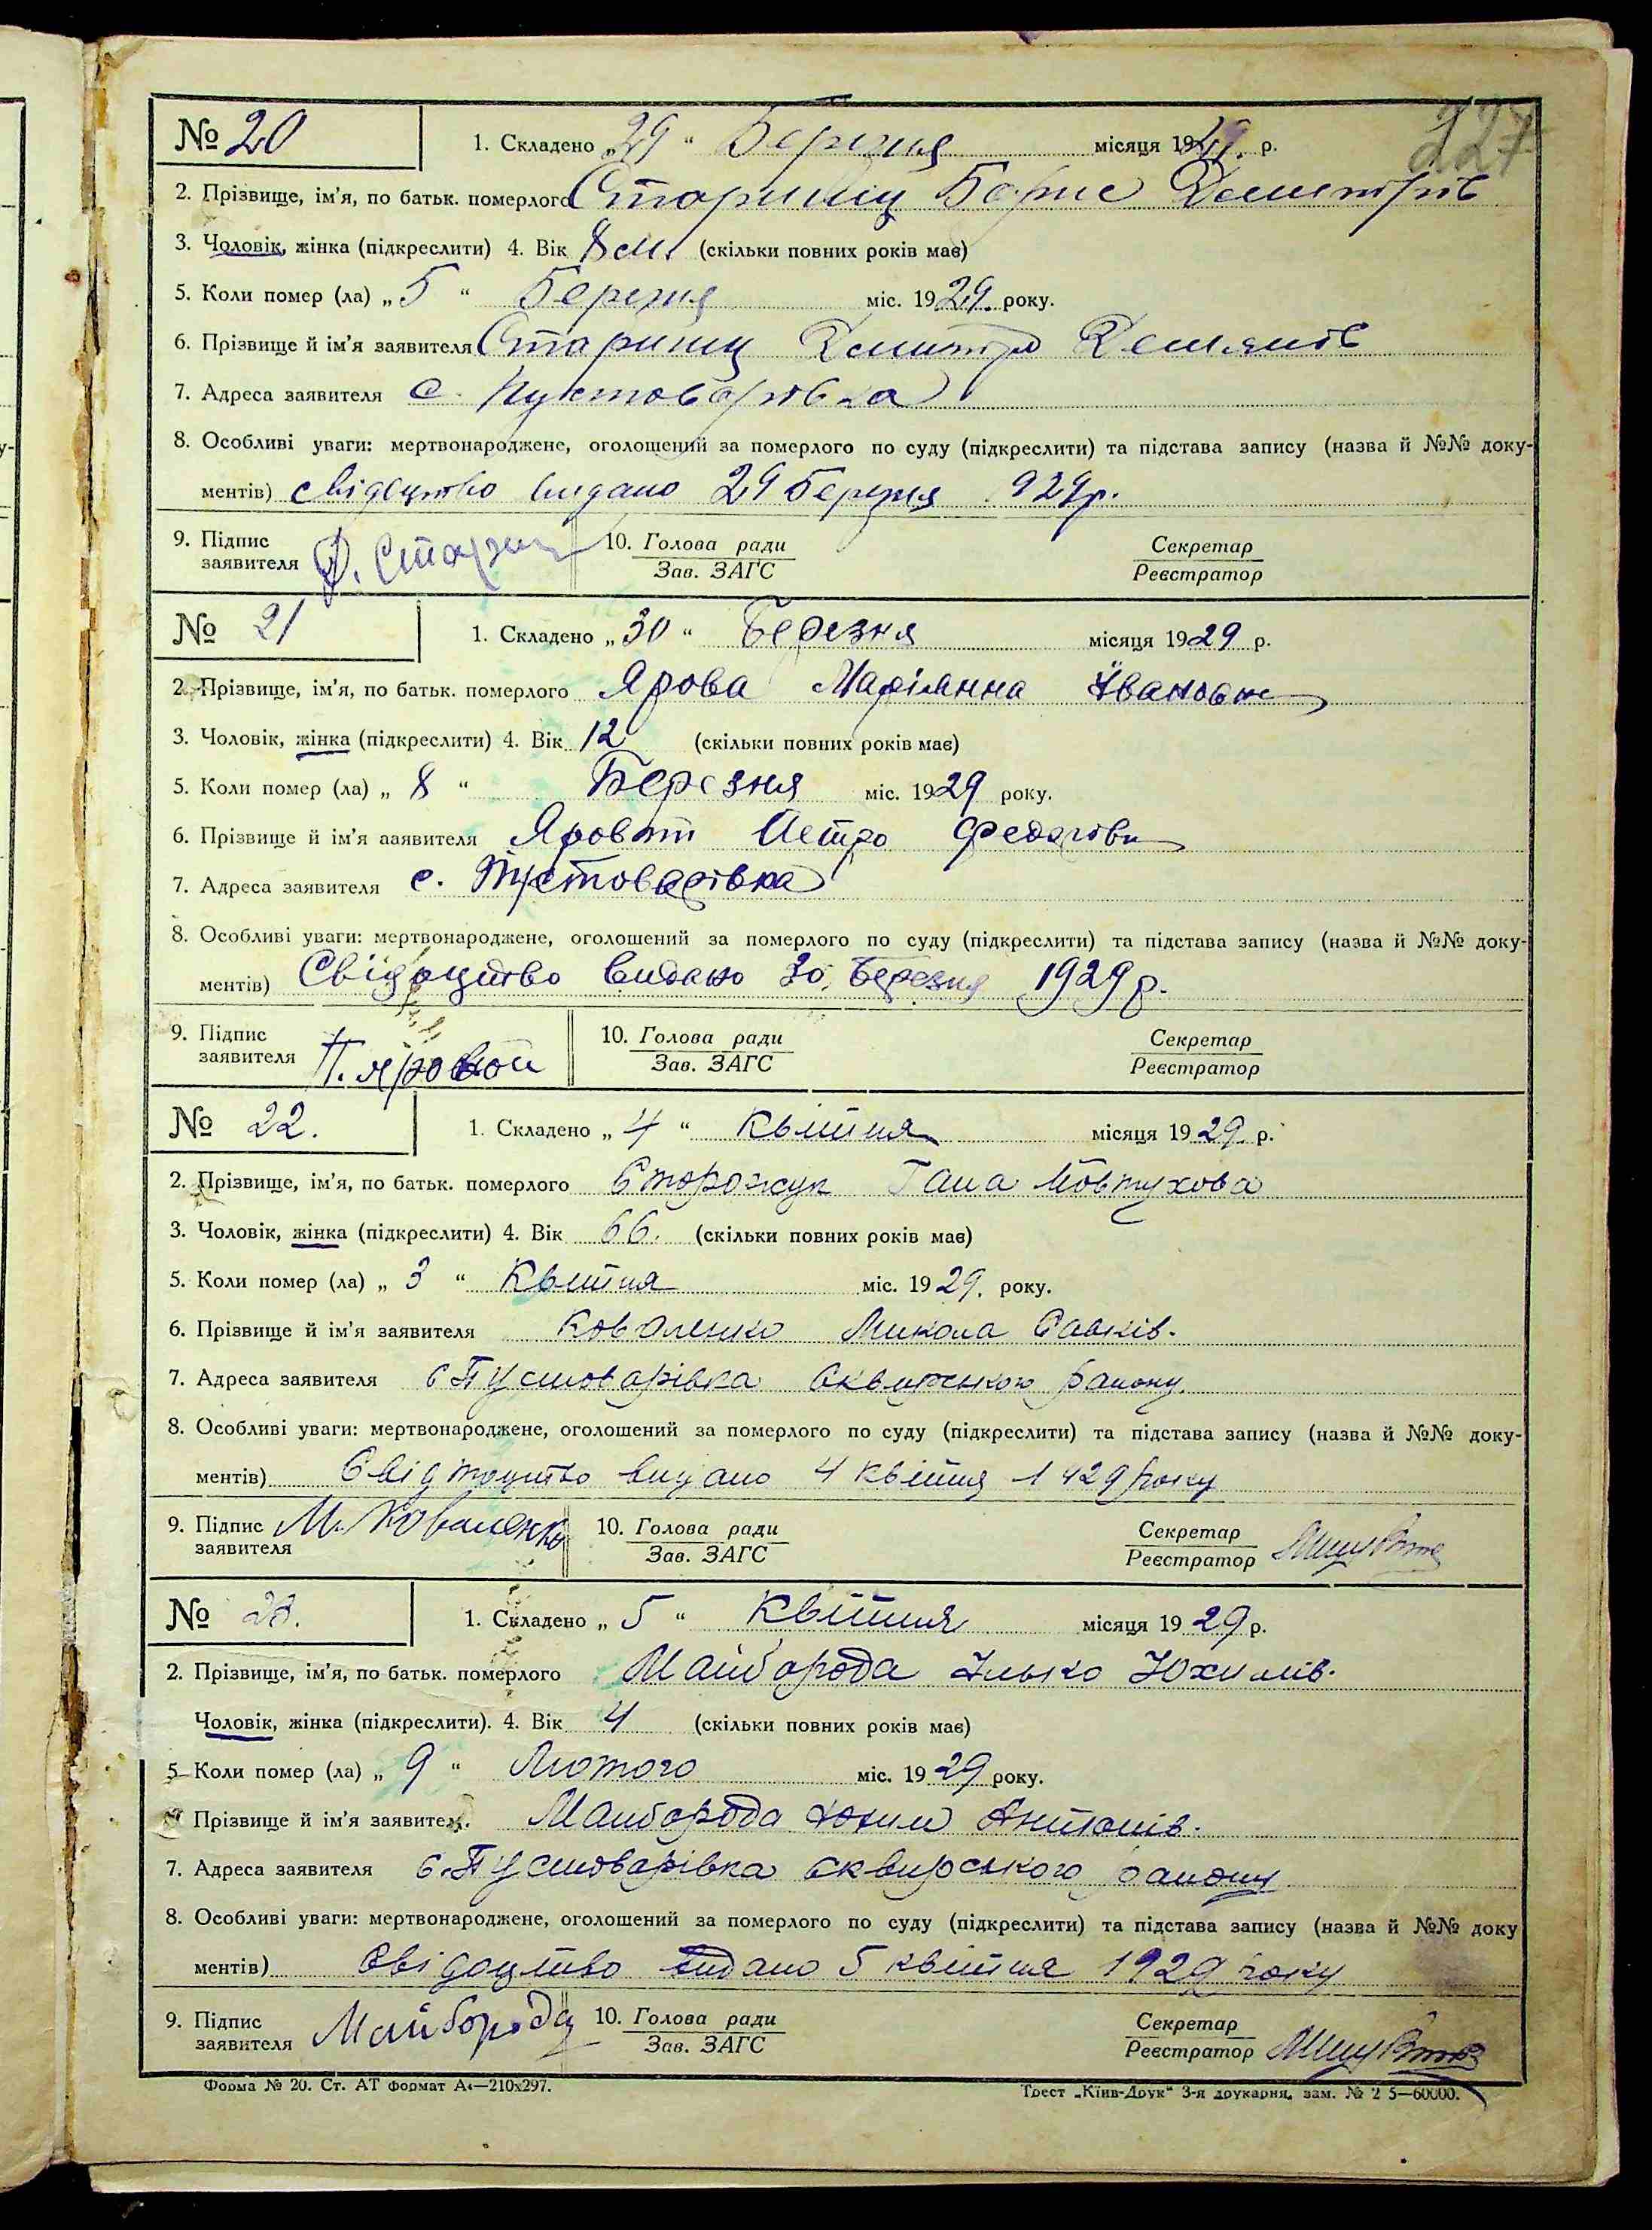 227
№ 20 1. Складено „29“ Березня місяця 1929. р.
2. Прізвище, ім'я, по батьк. померлого Старинец Борис Демитрів
3. Чоловік, жінка (підкреслити) 4. Вік 8 м. (скільки повних років має)
5. Коли помер (ла) „5“ Березня міс. 1929. року.
6. Прізвище й ім'я заявителя Старинец Демитро
7. Адреса заявителя с. Пустоварівка
8. Особливі уваги: мертвонароджене, оголошений за померлого по суду (підкреслити) та підстава запису (назва й №№ доку-
ментів) свідоцтво видано 29 березня 929р.
9. Підпис 10. Голова ради Секретар
заявителя Зав. ЗАГС Реєстратор
№ 21 1. Складено „30“ Березня місяця 1929 р.
2. Прізвище, ім'я, по батьк. померлого Ярова Маріянна Івановн
3. Чоловік, жінка (підкреслити) 4. Вік 12 (скільки повних років має)
5. Коли помер (ла) „8“ Березня міс. 1929 року.
6. Прізвище й ім'я ааявителя Яровий Петро Федорови
7. Адреса заявителя с. Пустоварівка
8. Особливі уваги: мертвонароджене, оголошений за померлого по суду (підкреслити) та підстава запису (назва й №№ доку-
ментів) Свідоцтво видано 30, Березня 1929 р.
9. Підпис 10. Голова ради Секретар
заявителя П. Яровой Зав. ЗАГС Реєстратор
№ 22. 1. Складено „4“ Квітня місяця 1929. р.
2. Прізвище, ім'я, по батьк. померлого Сторожук Гана Йовтухова
3. Чоловік, жінка (підкреслити) 4. Вік 66. (скільки повних років має)
5. Коли помер (ла) „3“ Квітня міс. 1929. року.
6. Прізвище й ім'я заявителя Коваленко Микола Савків.
7. Адреса заявителя с Пустоварівка Сквирського району.
8. Особливі уваги: мертвонароджене, оголошений за померлого по суду (підкреслити) та підстава запису (назва й №№ доку-
ментів) Свідоцтво видано 4 квітня 1929 року
9. Підпис М. Коваленко 10. Голова ради Секретар
заявителя Зав. ЗАГС Реєстратор
№ 23. 1. Складено „5“ Квітня місяця 1929 р.
2. Прізвище, ім'я, по батьк. померлого Майборода Ілько Юхимів.
Чоловік, жінка (підкреслити). 4. Вік 4 (скільки повних років має)
5 Коли помер (ла) „9“ Лютого міс. 1929 року.
Прізвище й ім'я заявител. Майборода Юхим Антонів.
7. Адреса заявителя с. Пустоварівка Сквирського району
8. Особливі уваги: мертвонароджене, оголошений за померлого по суду (підкреслити) та підстава запису (назва й №№ доку
ментів) Свідоцтво видано 5 квітня 1929 року
9. Підпис 10. Голова ради Секретар
заявителя Майборода Зав. ЗАГС Реєстратор
Форма № 20. Ст. АТ формат А4—210х297. Трест „Київ-Друк“ 3-я друкарня, зам. № 2 5—60000.